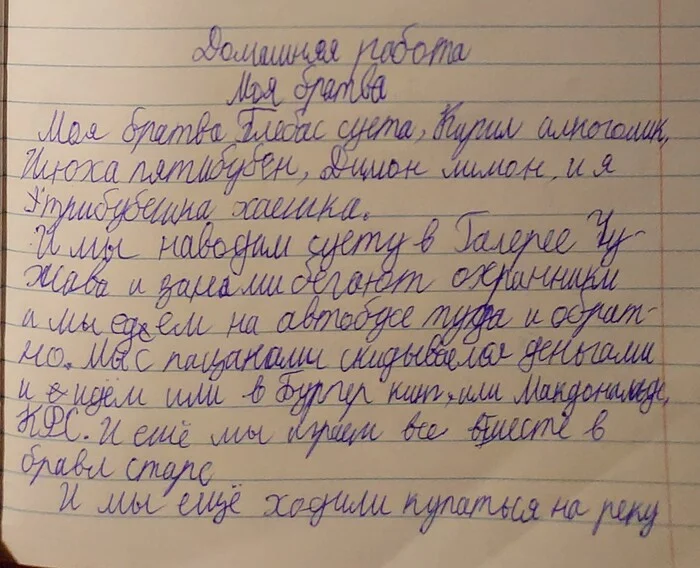 Домашняя работа
Моя братва
Моя братва Глебас суета, Кирил алкоголик,
Илюха пятибубен, Димон лимон, и я
Утрибубешка хаешка.
И мы наводим суету в Галерее Чи-
жова и за нами бегают охранники
а мы едем на автобусе туда и обрат-
но. Мы с пацанами скидываемся деньгами
и идём или в Бургер кинг, или Макдональдс,
КФС. И ещё мы играем все вместе в
бравл старс
И мы ещё ходили купаться на реку